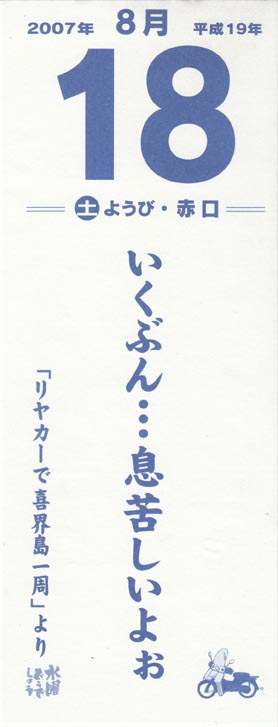 2007年 8月 平成19年
18
土ようび・赤口
いくぶん…息苦しいよぉ
「リヤカーで喜界島一周」より
水曜どうでしょう